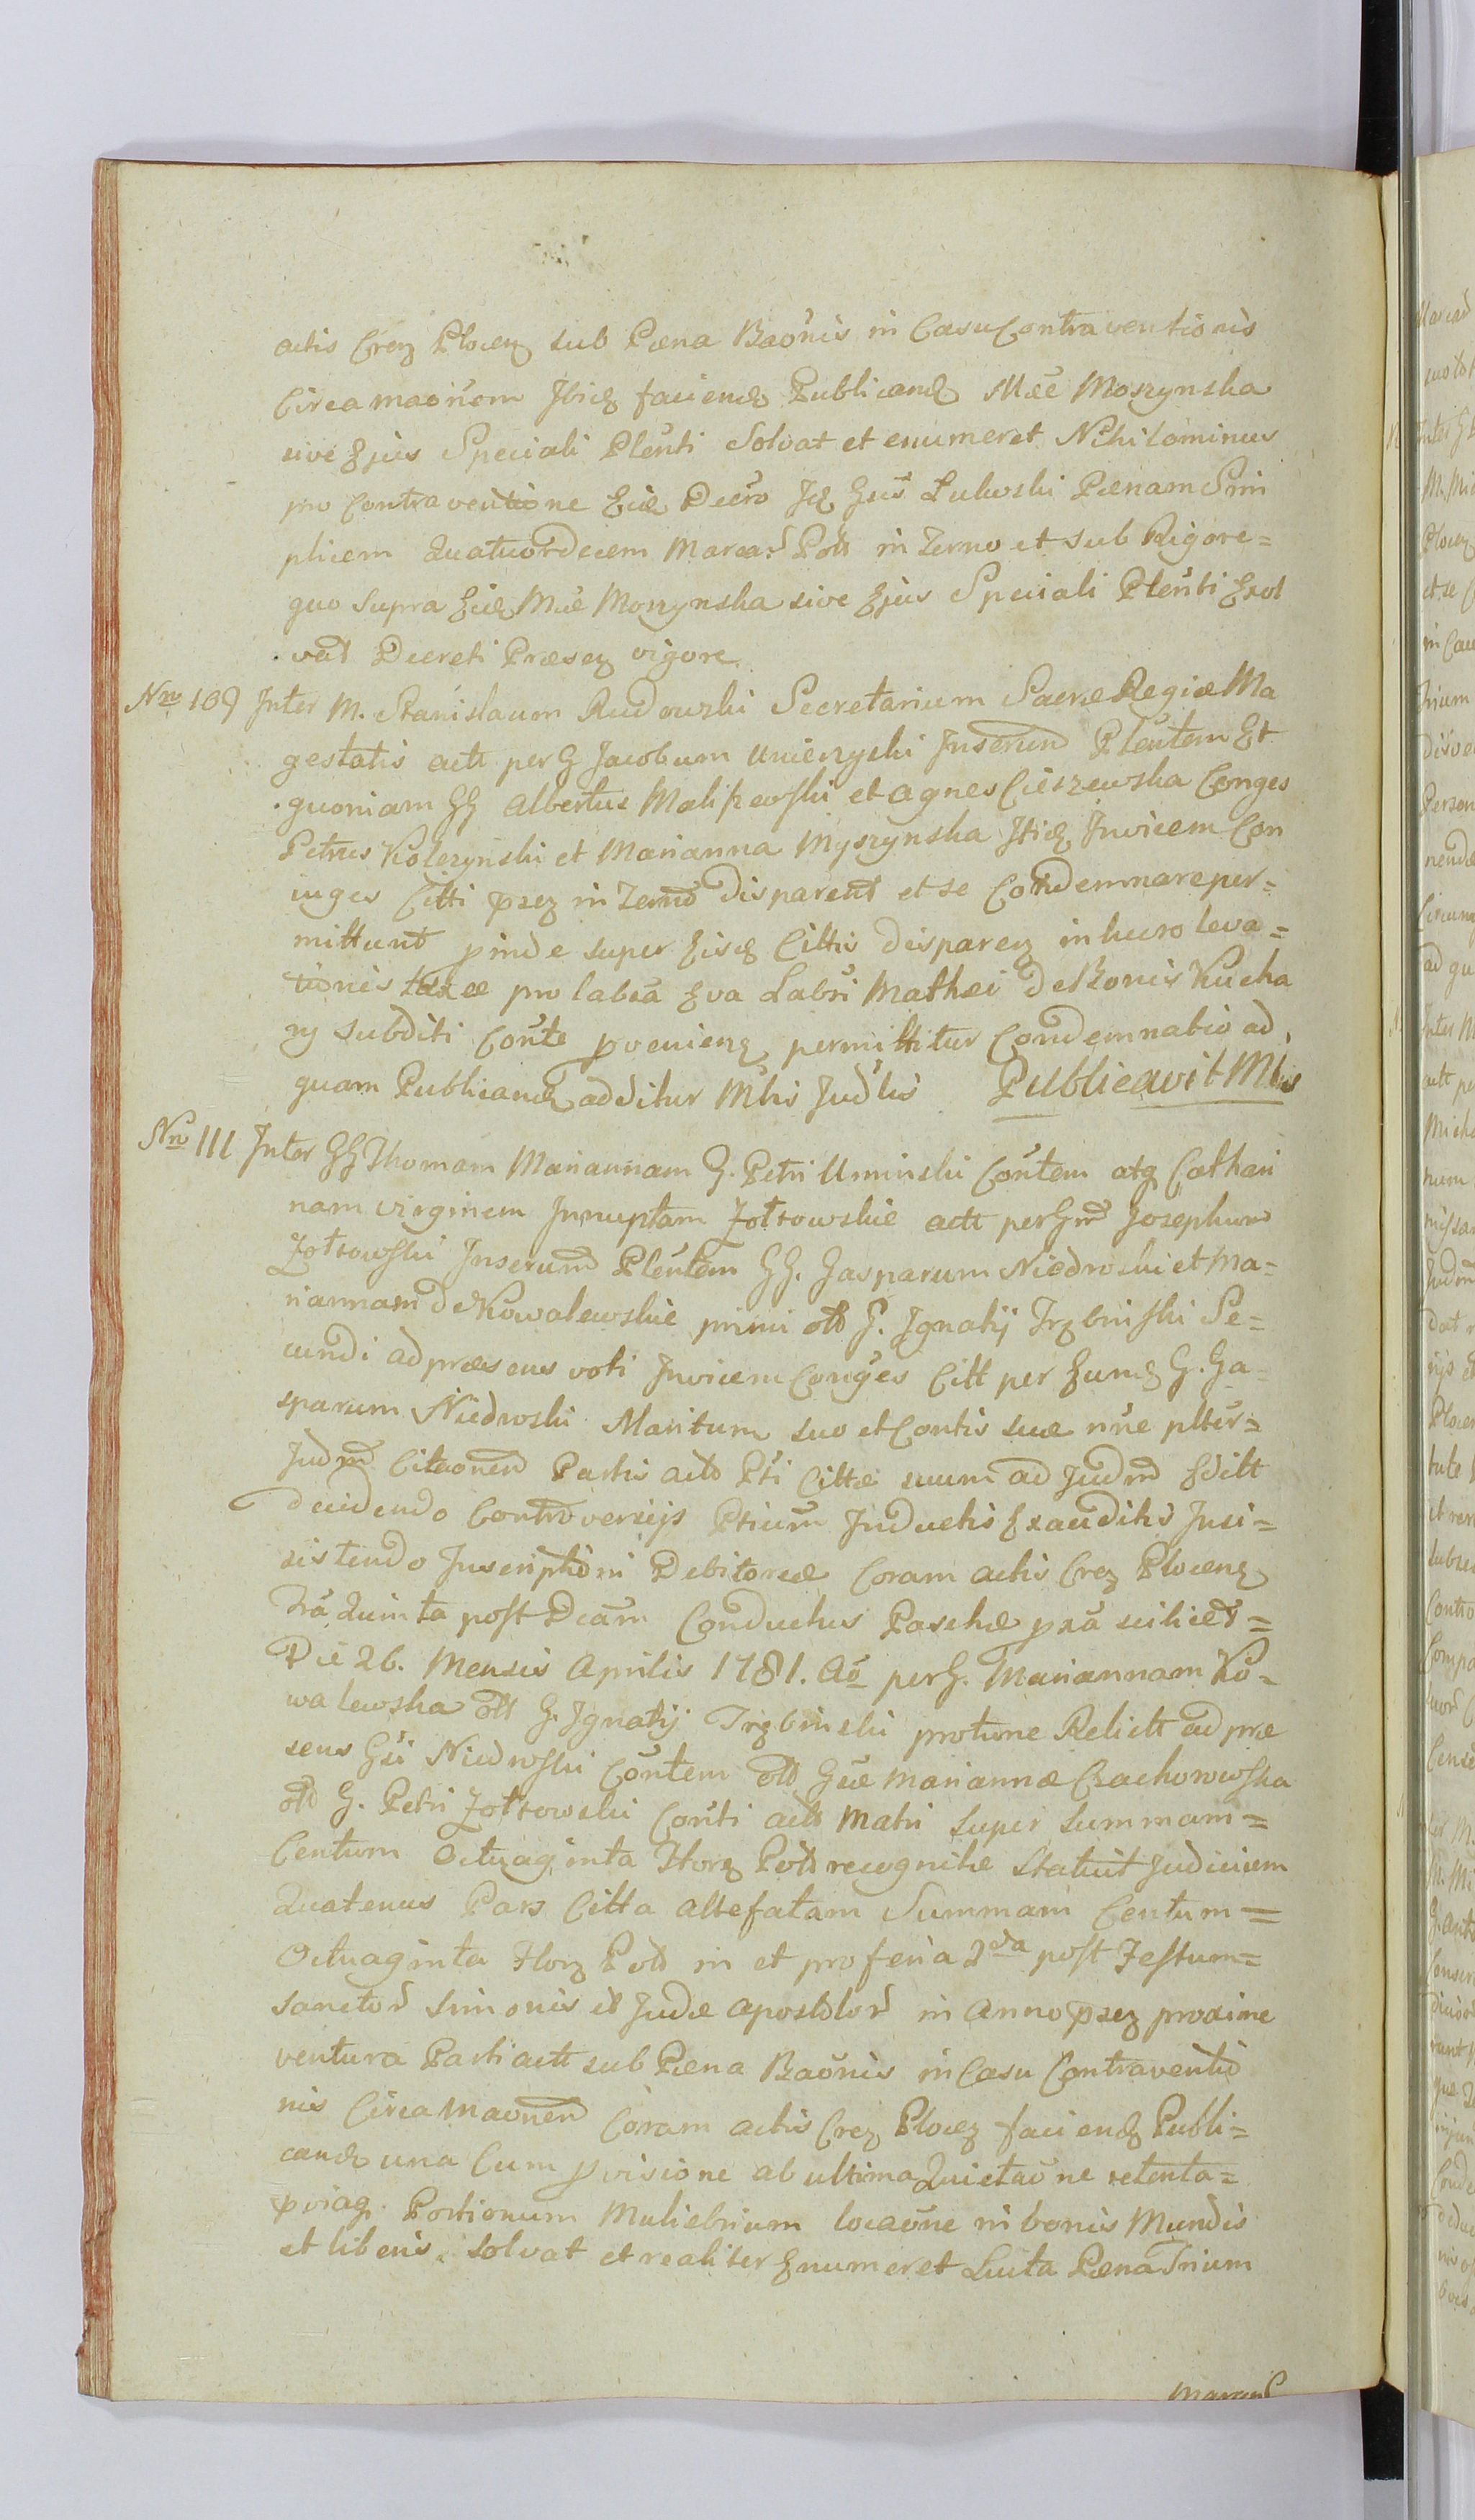 actis Crez Plocez sub Pæna Baonis in Casu Contraventionis
Circa maonem Ibidz faciendz Publicandz Mae Moszynska
sive Ejus Speciali Plenti Solvat et enumeret Nihilominus
pro Contraventione Eidz Decro Idz Gsus Lulewski Pænam Sim
plicem Quatuordecem Marcar Poll in Termo et sub Rigore=
quo supra Eidz Mae Moszynska sive Ejus Speciali Plenti Exol
vat Decreti Præsez vigore.
Nro 109 Inter M. Stanislaum Rudowski Secretarium Sacræ Regiæ Ma
gestatis actt per G Jacobum Uniezyski Inserum Plentem Et
quoniam GG Albertus Maliszewski et Agnes Cieszewska Conges
Petrus Kolczynski et Marianna Myszynska Itidz Invicem Con
iuges Citti psez in Termo disparent et se Condemnare per=
mittunt pinde super Eisdz Cittis disparez in lucro leva=
tionis taxæ pro labca Eva Labri Mathæi de Bonis Kucha
ry subditi Conte pveniens permittitur Condemnatio ad
quam Publicandz additur Mtris Judlis Publicavit Mtris
Nro 111 Inter GG Thomam Mariannam G. Petri Uminski Contem atq Cathari
nam virginem Innuptam Zołtowskie actt per Gm Josephum
Zołtowski Inserum Plentem GG. Gasparum Niedroski et Ma=
riannam de Kowalewskie primi olo G. Ignatij Trzbinski Se=
cundi ad præsens voti Invicem Conges Citt per Eundz G. Ga=
sparum Niedroski Maritum suo et Contis suæ nne plter=
Judm Citaonem Partis acto Pti Cittæ suum ad Judm Editt
decidendo Controversijs Ptium Inductis Exauditis Insi=
sistendo Inscriptioni Debitoreæ Coram actis Crez Plocenz
fra Quinta post Dcam Conductus Paschæ pxa scilicet=
Die 26. Mensis Aprilis 1781. Ao per G. Mariannam Ko=
walewska oll G. Ignatij Trzbinski protunc Relictt ad præ
sens Gsi Niedroski Contem olo Gsæ Mariannæ Czachorowska
olo G. Petri Zołtowski Conti acto Matri super summam=
Centum Octuaginta Florz Poll recognitæ Statuit Judicium
Quatenus Pars Citta attefatam Summam Centum=
Octuaginta Florz Poll in et pro feria 2da post Festum=
Sanctor Simonis et Judæ Apostolor in Anno psez proxime
ventura Parti actt sub Pæna Baonis in Casu Contraventio
nis Circa maonem Coram actis Crez Plocez faciendz Publi=
candz una Cum pvisione ab ultima Quietaone retenta=
pviaq. Portionum Muliebrium locaone in bonis Mundis
et liberis solvat et realiter Enumeret Luita Pæna Trium
Marcar